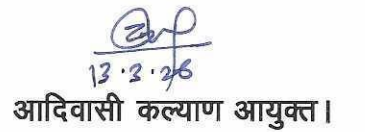 13.3.26
आदिवासी कल्याण आयुक्त।